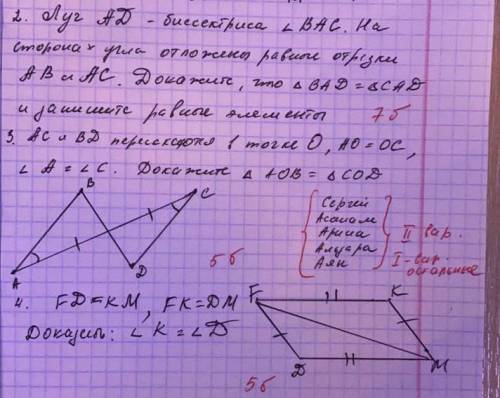 2. Луч AD - биссектриса ∠BAC. На
сторонах угла отложены равные отрізки
AB и AC. Докажите, что △BAD = △CAD
и запишите равные элементы 7б
3. AC и BD пересекаются в точке O, AO = OC,
∠A = ∠C. Докажите △AOB = △COD
B
C
A
D
5б
Сергей
Асанам
Арина
Алдара
Аян
II вар.
I-вар.
остальные
4. FD = KM, FK = DM
Доказать: ∠K = ∠D
F
K
D
M
5б